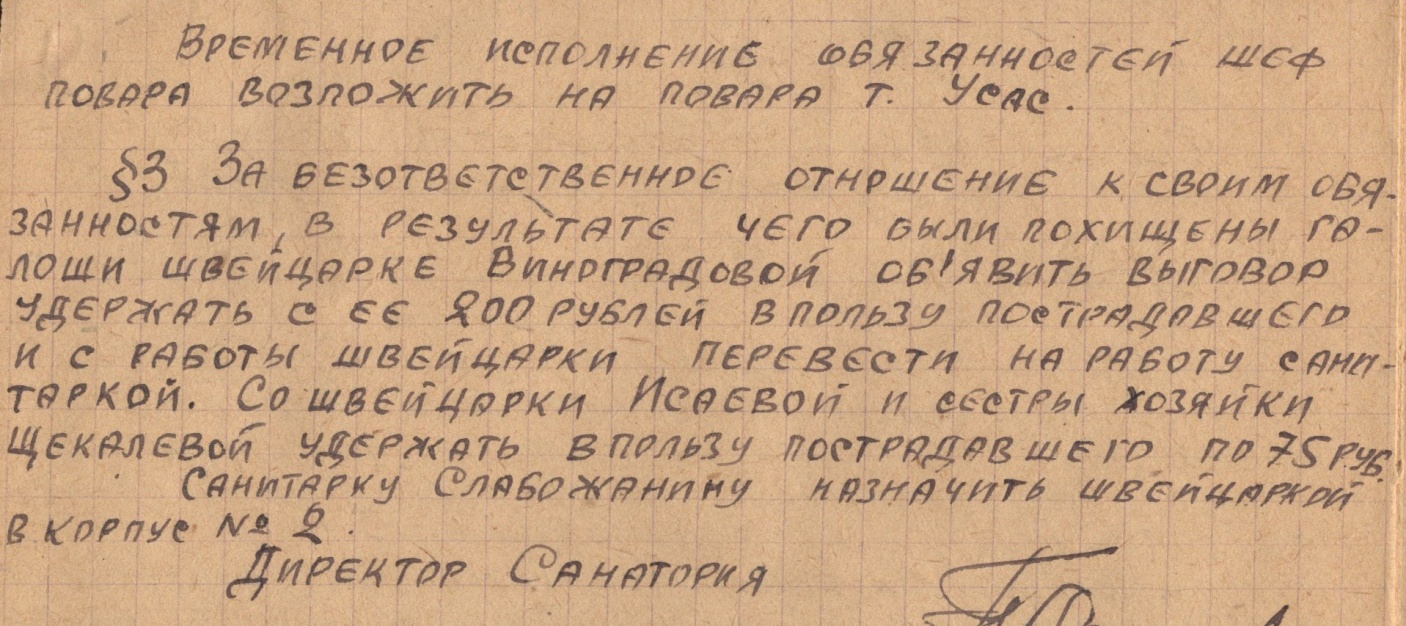 Временное исполнение обязанностей шеф
повара возложить на повара т. Усас.
§3 За безответственное отношение к своим обя-
занностям, в результате чего были похищены га-
лоши швейцарке Виноградовой об'явить выговор
удержать с ее 200 рублей в пользу пострадавшего
и с работы швейцарки перевести на работу сани-
таркой. Со швейцарки Исаевой и сестры хозяйки
Щекалевой удержать в пользу пострадавшего по 75 руб.
Санитарку Слабожанину назначить швейцаркой
в корпус № 2.
Директор Санатория